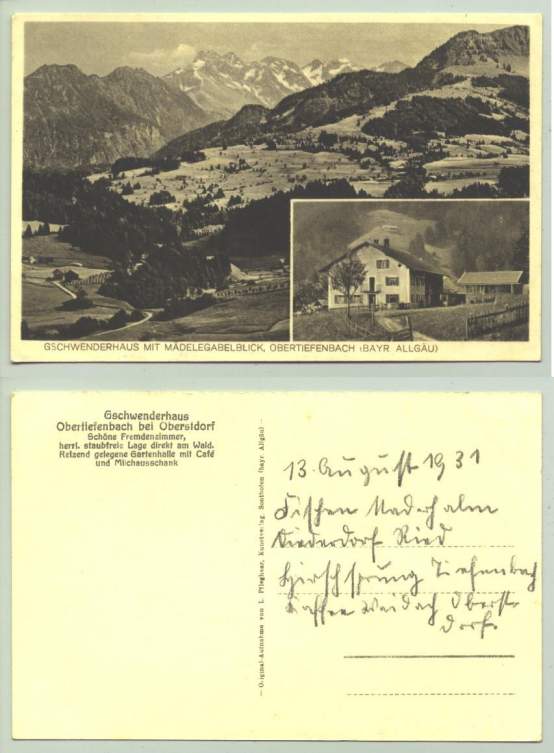 GSCHWENDERHAUS MIT MÄDELEGABELBLICK, OBERTIEFENBACH (BAYR. ALLGÄU)
Gschwenderhaus
Obertiefenbach bei Oberstdorf
Schöne Fremdenzimmer,
herrl. staubfreie Lage direkt am Wald.
Reizend gelegene Gartenhalle mit Café
und Milchausschank
— Original-Aufnahme von L. Pflegheer, Kunstverlag Sonthofen (bayr. Allgäu) —
13. August 1931
Fischen Maderhalm
Ried
Hirschsprung Tiefenbach
Kaffee Weidach Oberst-
dorf.